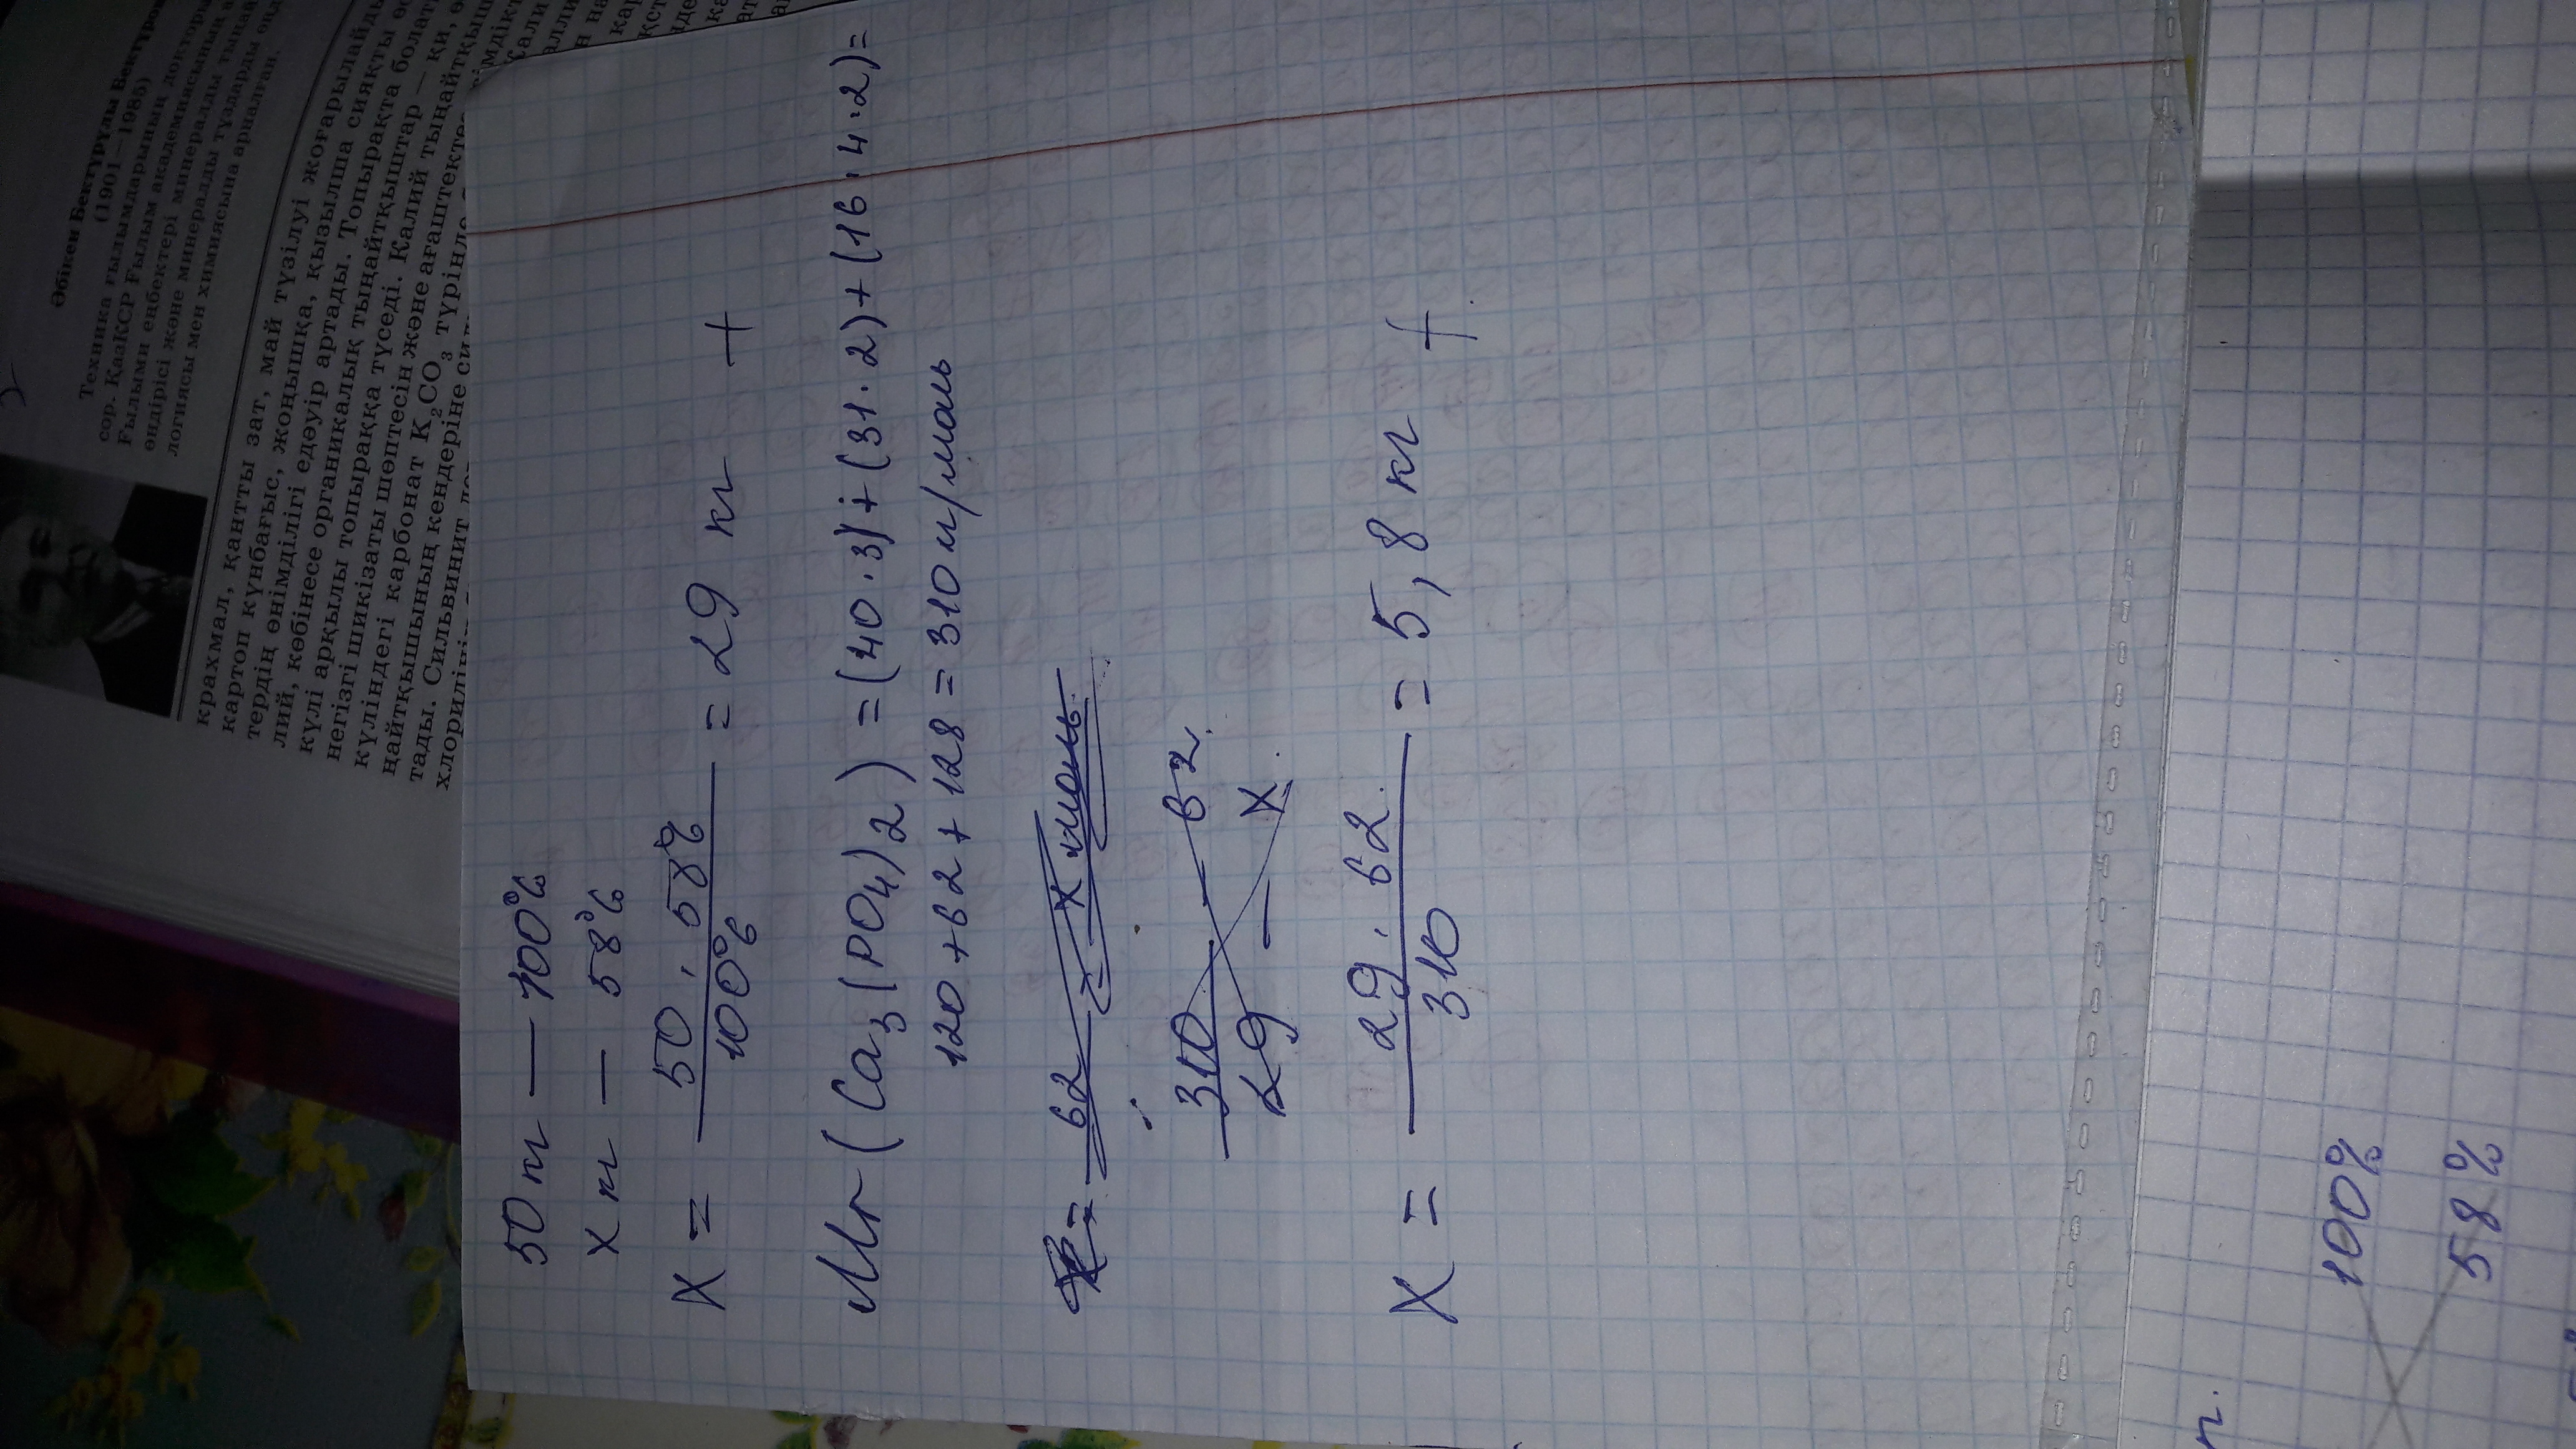 Әбікен Бектұрұлы Бектұров
(1901—1985)
Техника ғылымдарының докторы,
сор. ҚазКСР Ғылым академиясының
Ғылыми еңбектері минералды
өндірісі және минералды тұздарды
логиясы мен химиясына арналған.
крахмал, қантты зат, май түзілуі жоғарылайды
картоп күнбағыс, жоңышқа, қызылша сияқты
тердің өнімділігі едәуір артады. Топырақта болат
лий, көбінесе органикалық тыңайтқыштар
күлі арқылы топыраққа түседі. Калий тыңайтқыш
негізгі шикізаты шөптесін және ағаштектес
күліндегі карбонат K2CO3 түрінде
ңайтқышының кендеріне
тады. Сильвинит
50 кг — 100%
х кг — 58%
X = 50 · 58% / 100% = 29 кг +
Mr (Ca3(PO4)2) = (40·3)+(31·2)+(16·4·2)=
120+62+128 = 310 г/моль
62 х моль
310 — 62
29 — X
X = 29 · 62 / 310 = 5,8 кг +
100%
58%